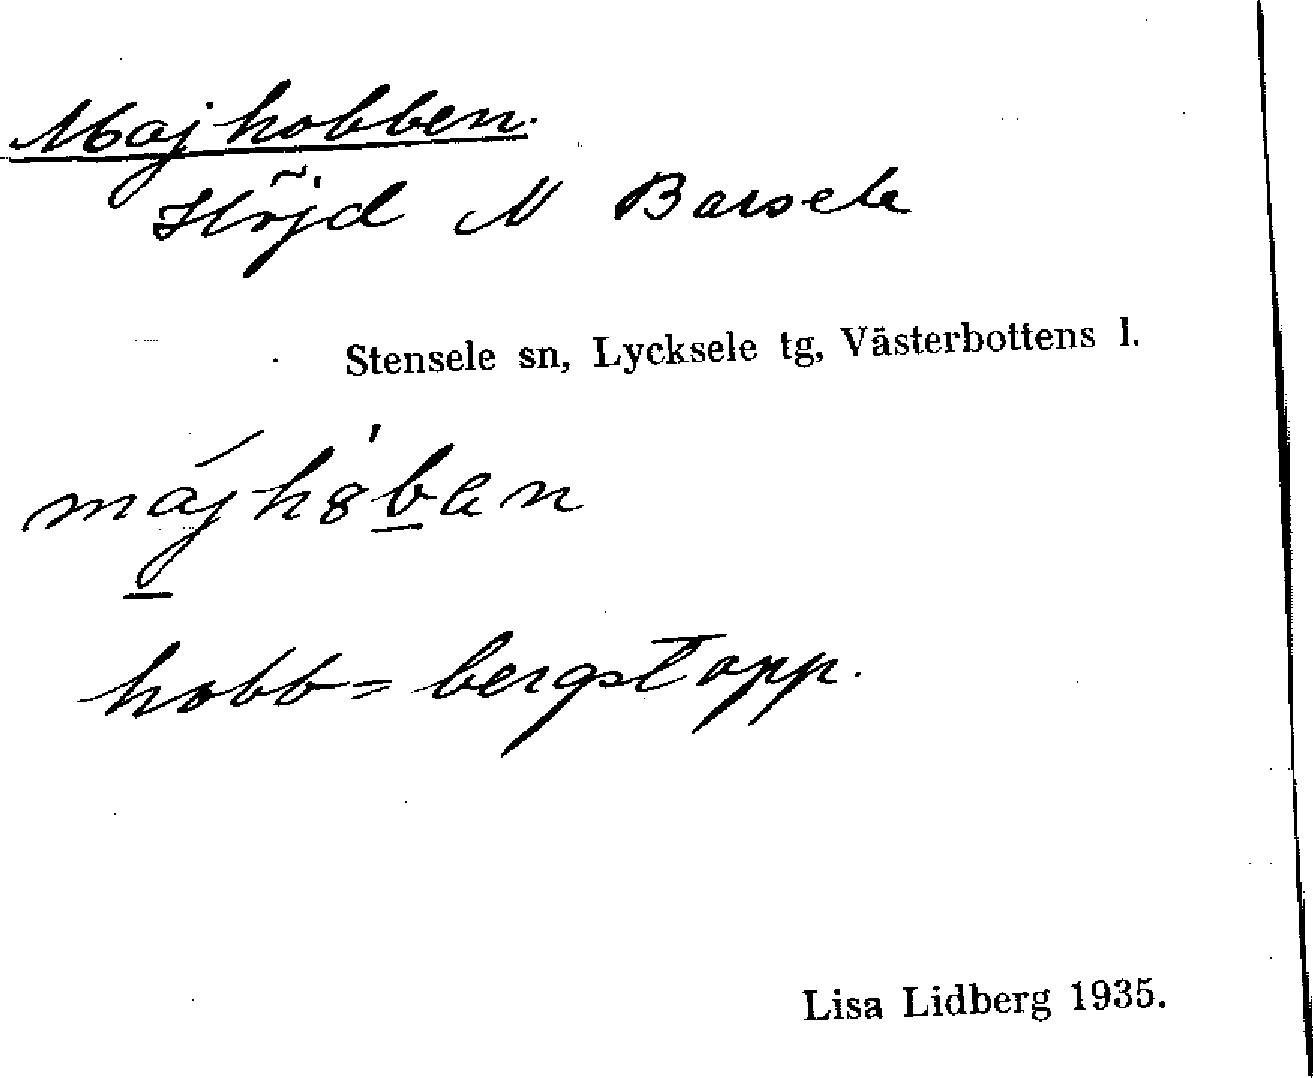 Majhobben.
Höjd N Barsele
Stensele sn, Lycksele tg, Västerbottens l.
májh8̍b̲an
hobb = bergstopp.
Lisa Lidberg 1935.